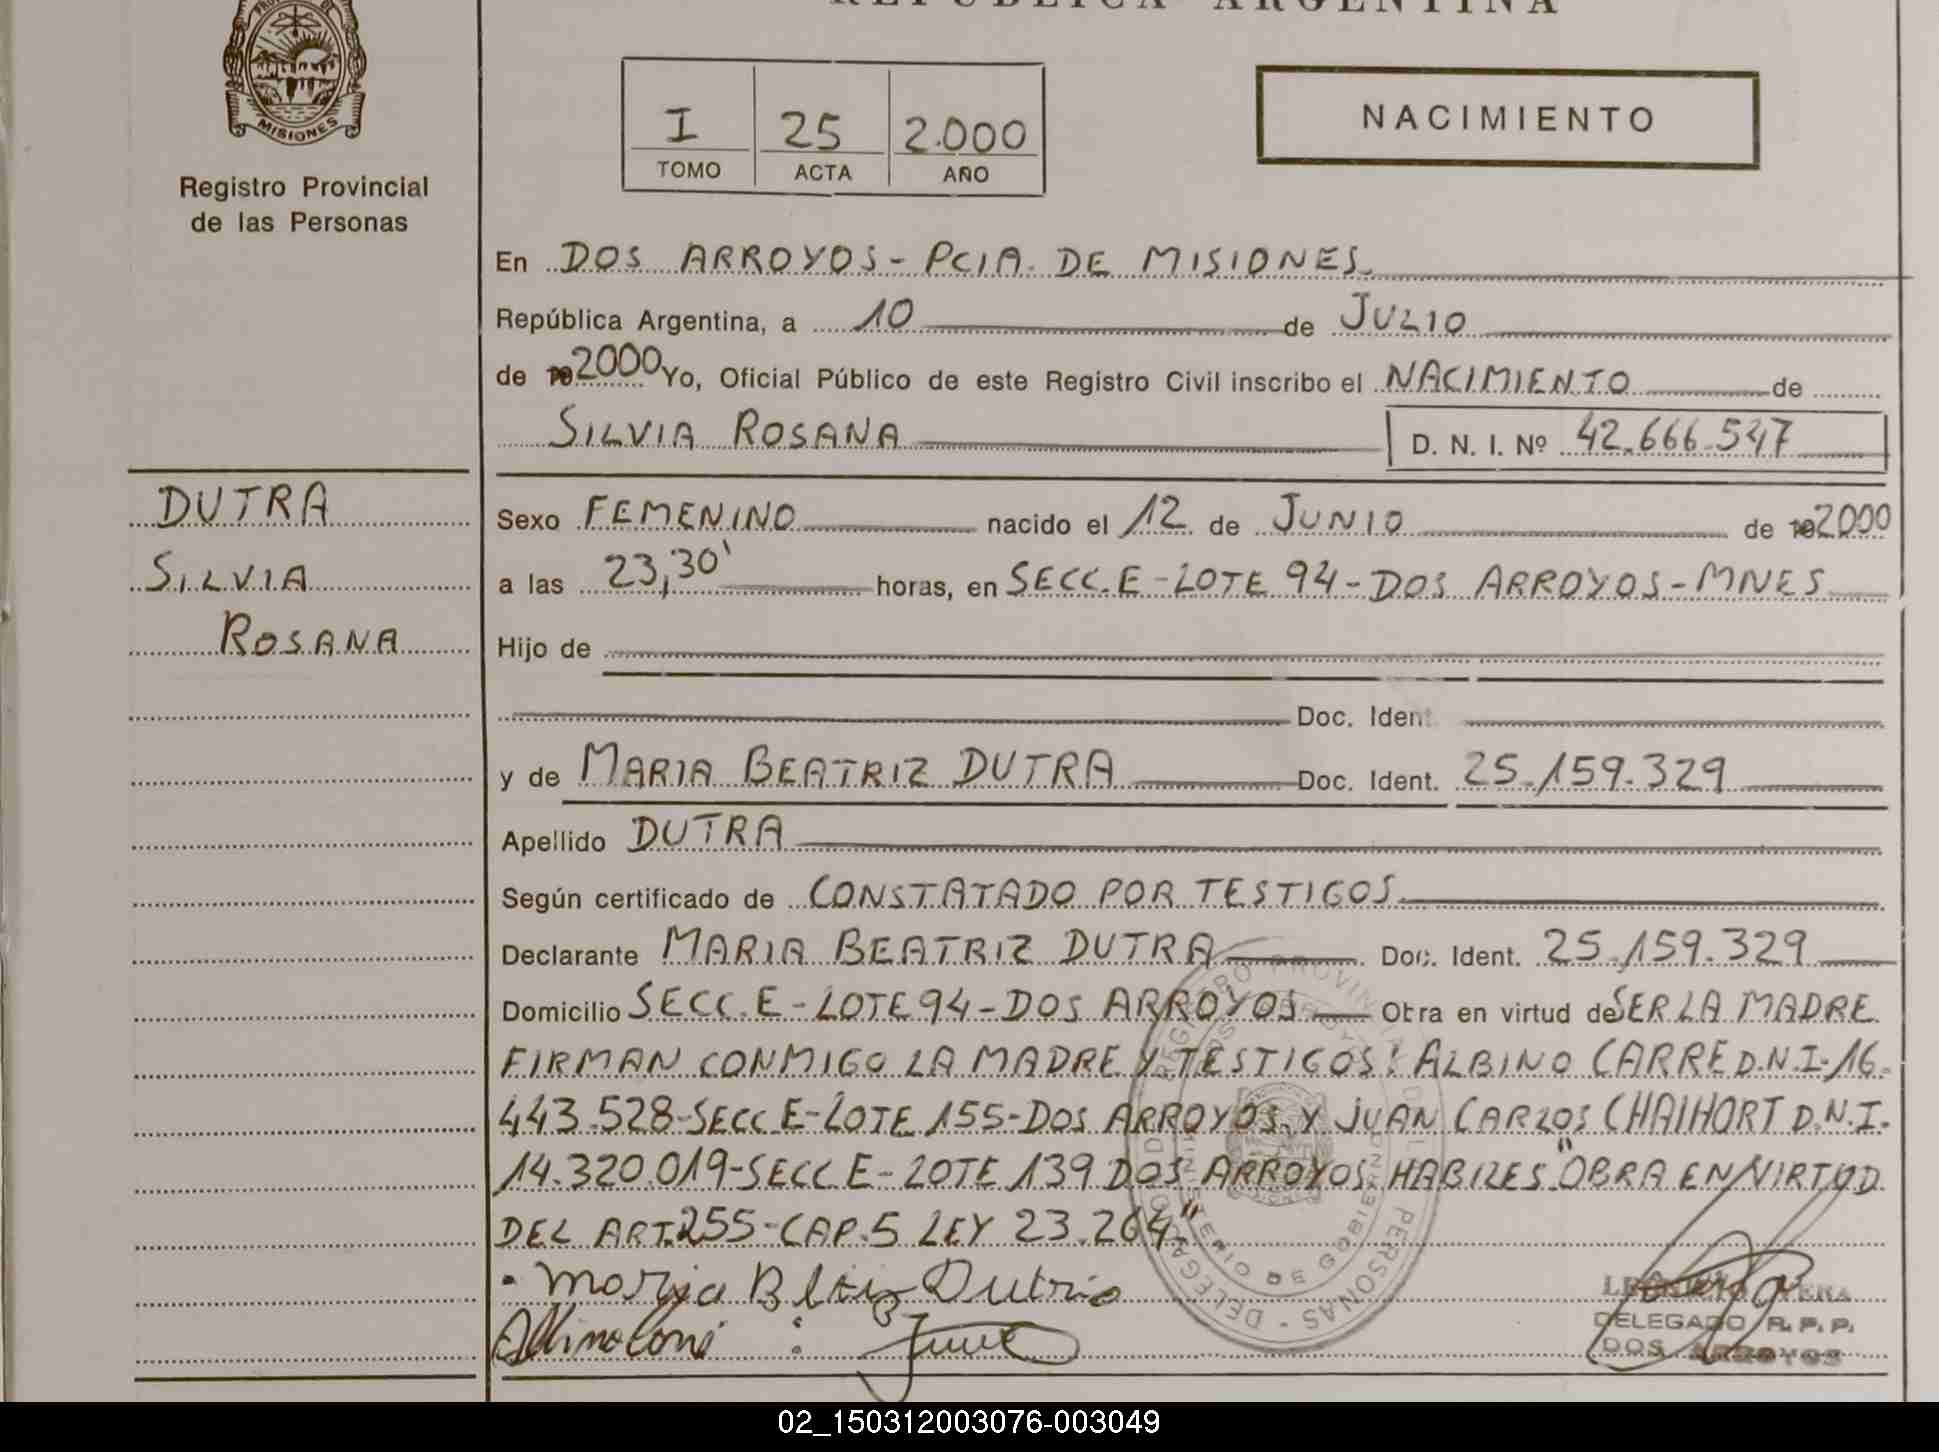 REPUBLICA ARGENTINA
MISIONES
Registro Provincial
de las Personas
I 25 2.000
TOMO ACTA AÑO
NACIMIENTO
En DOS ARROYOS - PCIA. DE MISIONES.
República Argentina, a 10 de JULIO
de 19 2000 Yo, Oficial Público de este Registro Civil inscribo el NACIMIENTO de
SILVIA ROSANA D. N. I. Nº 42.666.547
DUTRA
SILVIA
ROSANA
Sexo FEMENINO nacido el 12 de JUNIO de 19 2000
a las 23,30' horas, en SECC. E - LOTE 94 - DOS ARROYOS - MNES
Hijo de
Doc. Ident.
y de MARIA BEATRIZ DUTRA Doc. Ident. 25.159.329
Apellido DUTRA
Según certificado de CONSTATADO POR TESTIGOS
Declarante MARIA BEATRIZ DUTRA Doc. Ident. 25.159.329
Domicilio SECC. E - LOTE 94 - DOS ARROYOS Obra en virtud de SER LA MADRE
FIRMAN CONMIGO LA MADRE Y TESTIGOS: ALBINO CARRE D.N.I-16.
443.528-SECC E-LOTE 155-DOS ARROYOS. Y JUAN CARLOS CHAIHORT D.N.I.
14.320.019-SECC. E - LOTE 139 DOS ARROYOS, HABILES "OBRA EN VIRTUD
DEL ART.255-CAP.5 LEY 23.264"
REGISTRO PROVINCIAL DE LAS PERSONAS - DELEGACION
Dutra
VERA
DELEGADO R. P. P.
DOS ARROYOS
02_150312003076-003049